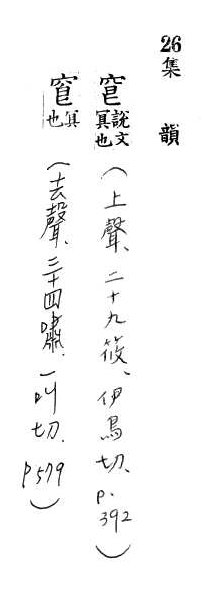 26集 韻
說文冥也(上聲、二十九筱、伊鳥切.p.392)
冥也(去聲、三十四嘯.一叫切.p579)